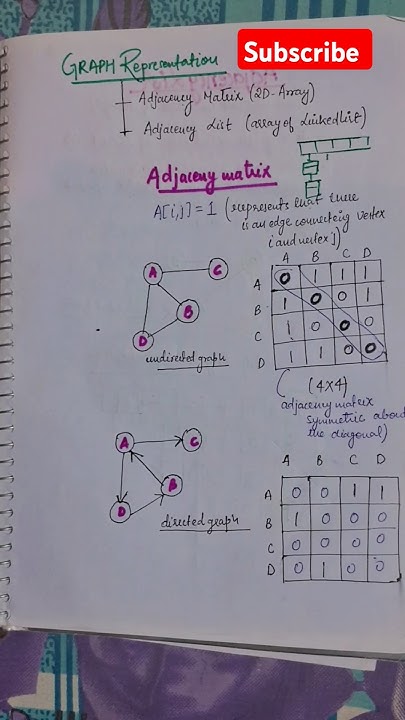 Subscribe
GRAPH Representation
Adjacency Matrix (2D-Array)
Adjacency List (array of Linked List)
Adjaceny matrix
A[i,j] = 1 (represents that there
is an edge connecting vertex
i and vertex j)
A B C D
A 0 1 1 1
B 1 0 0 1
C 1 0 0 0
D 1 1 0 0
A C
B
D
undirected graph
(4X4)
adjacency matrix
symmetric about
the diagonal)
A C
B
D
directed graph
A B C D
A 0 0 1 1
B 1 0 0 0
C 0 0 0 0
D 0 1 0 0